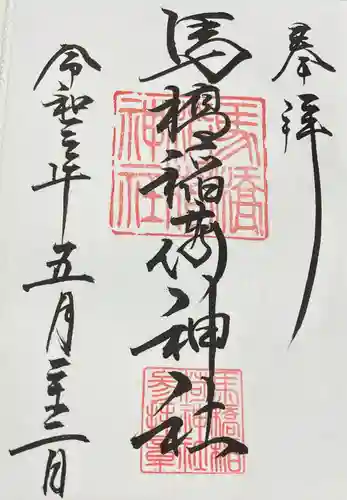 奉拝
馬橋稲荷神社
馬橋神社
馬橋稲荷神社参拝章
令和三年五月二十二日